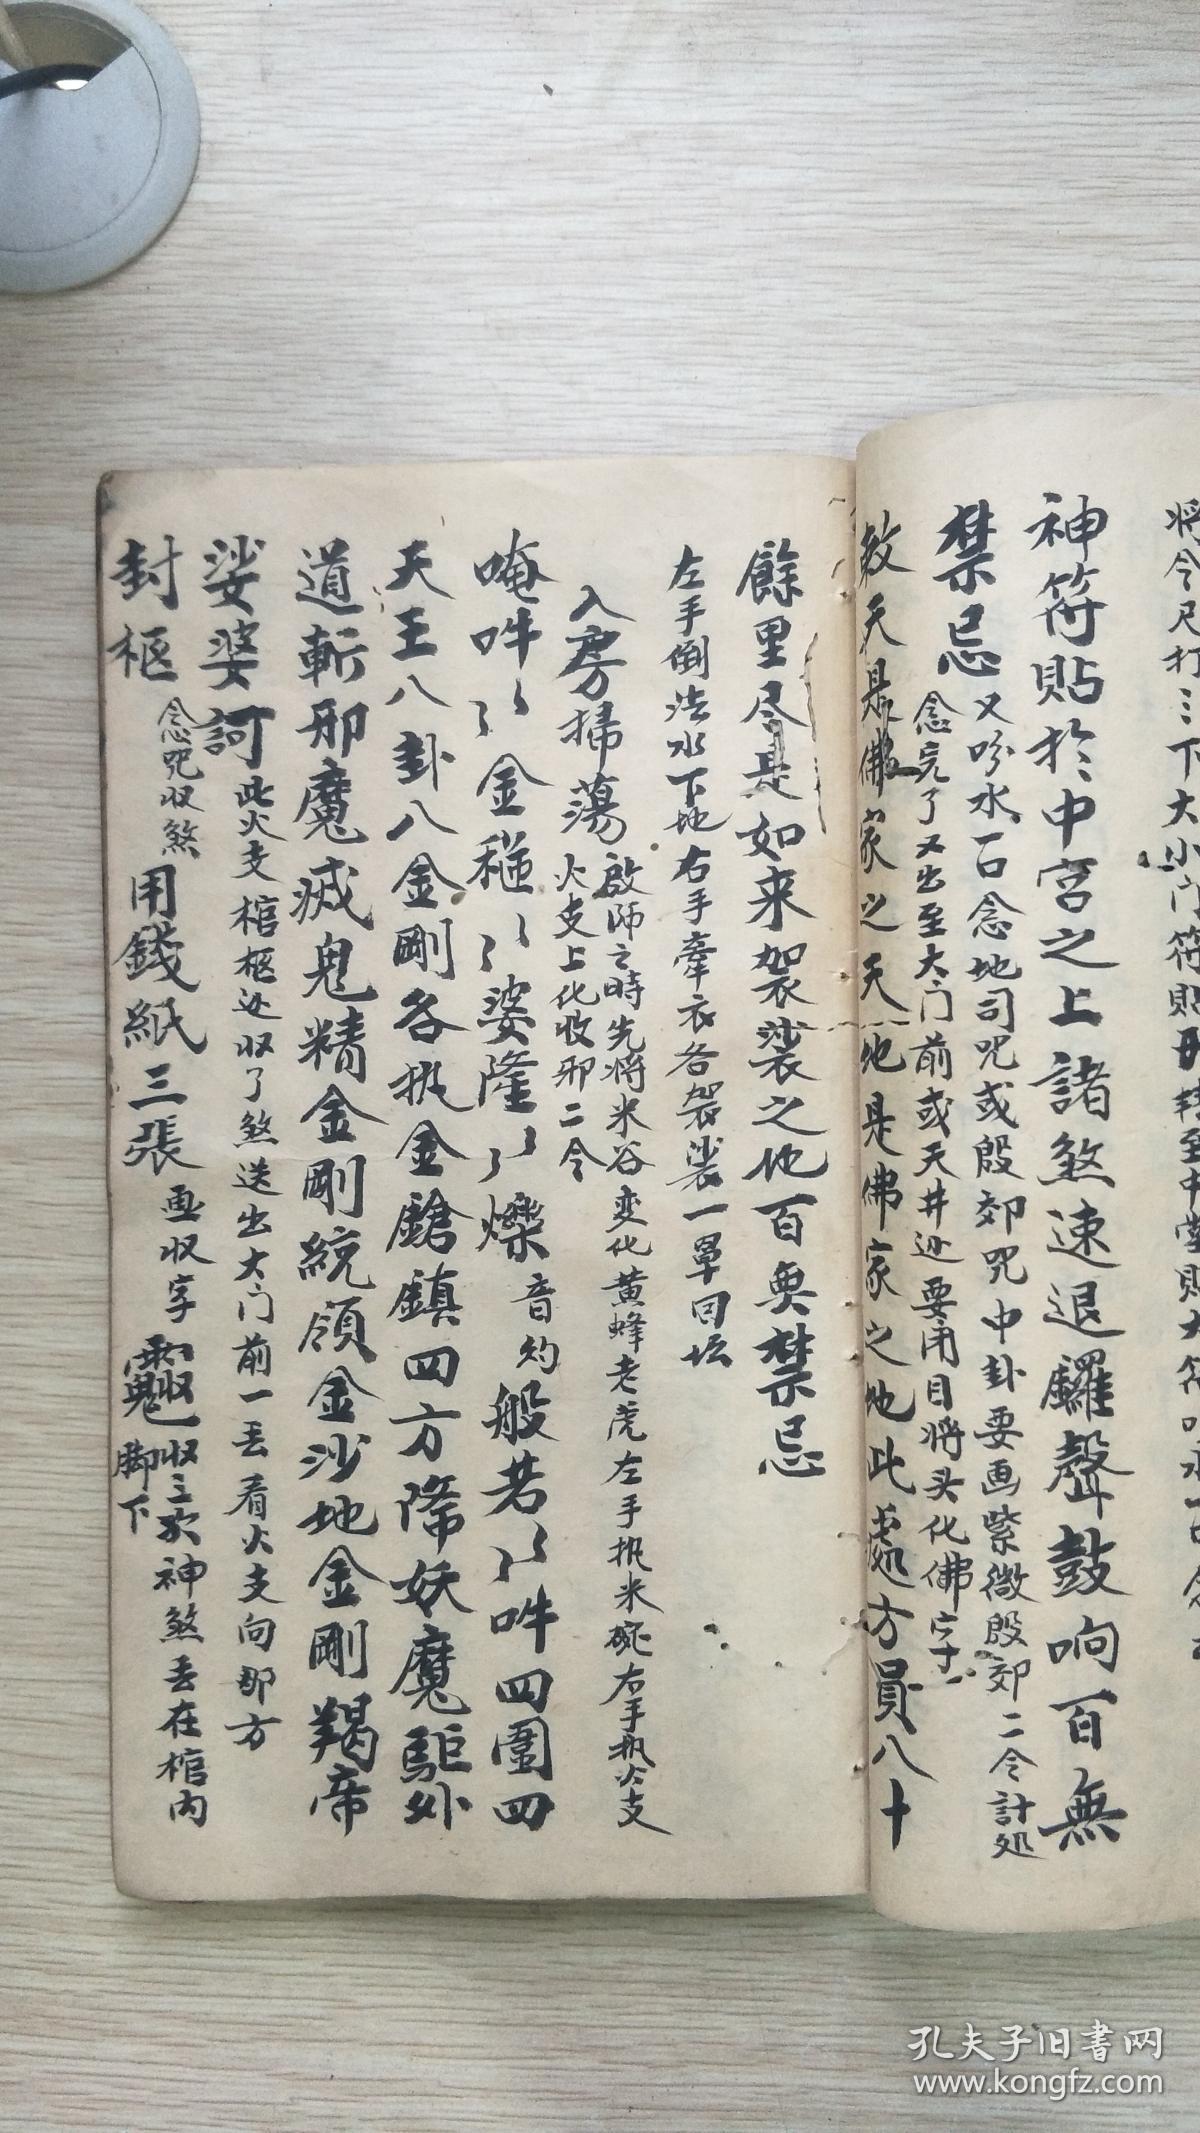 将令尺打三下大小门符貼
神符貼於中宮之上諸煞速退鑼聲鼓响百無
禁忌
又吩水一口念地司咒或殷郊咒中卦要画紫微殷郊二令計处
念完了又出至大门前或天井边要用目将头化佛字
敕天是佛家之天地是佛家之地此處方員八十
餘里尽是如来袈裟之地百無禁忌
左手倒法水下地右手牽衣各袈裟一罩回坛
入房掃蕩
啟師之時先将米谷变化黄蜂老虎左手执米碗右手执火支
火支上化收邪二令
唵吽〻金 〻婆隆〻爍音灼般若〻吽四圍四
天王八卦八金剛各执金鎗鎮四方降妖魔駈外
道斬邪魔滅鬼精金剛統領金沙地金剛羯帝
娑婆訶
此火支棺柩边收了煞送出大门前一丢看火支向那方
封柩
念咒收煞
用錢紙三張
画收字
收三 神煞丢在棺内
脚下
孔夫子旧书网
www.kongfz.com